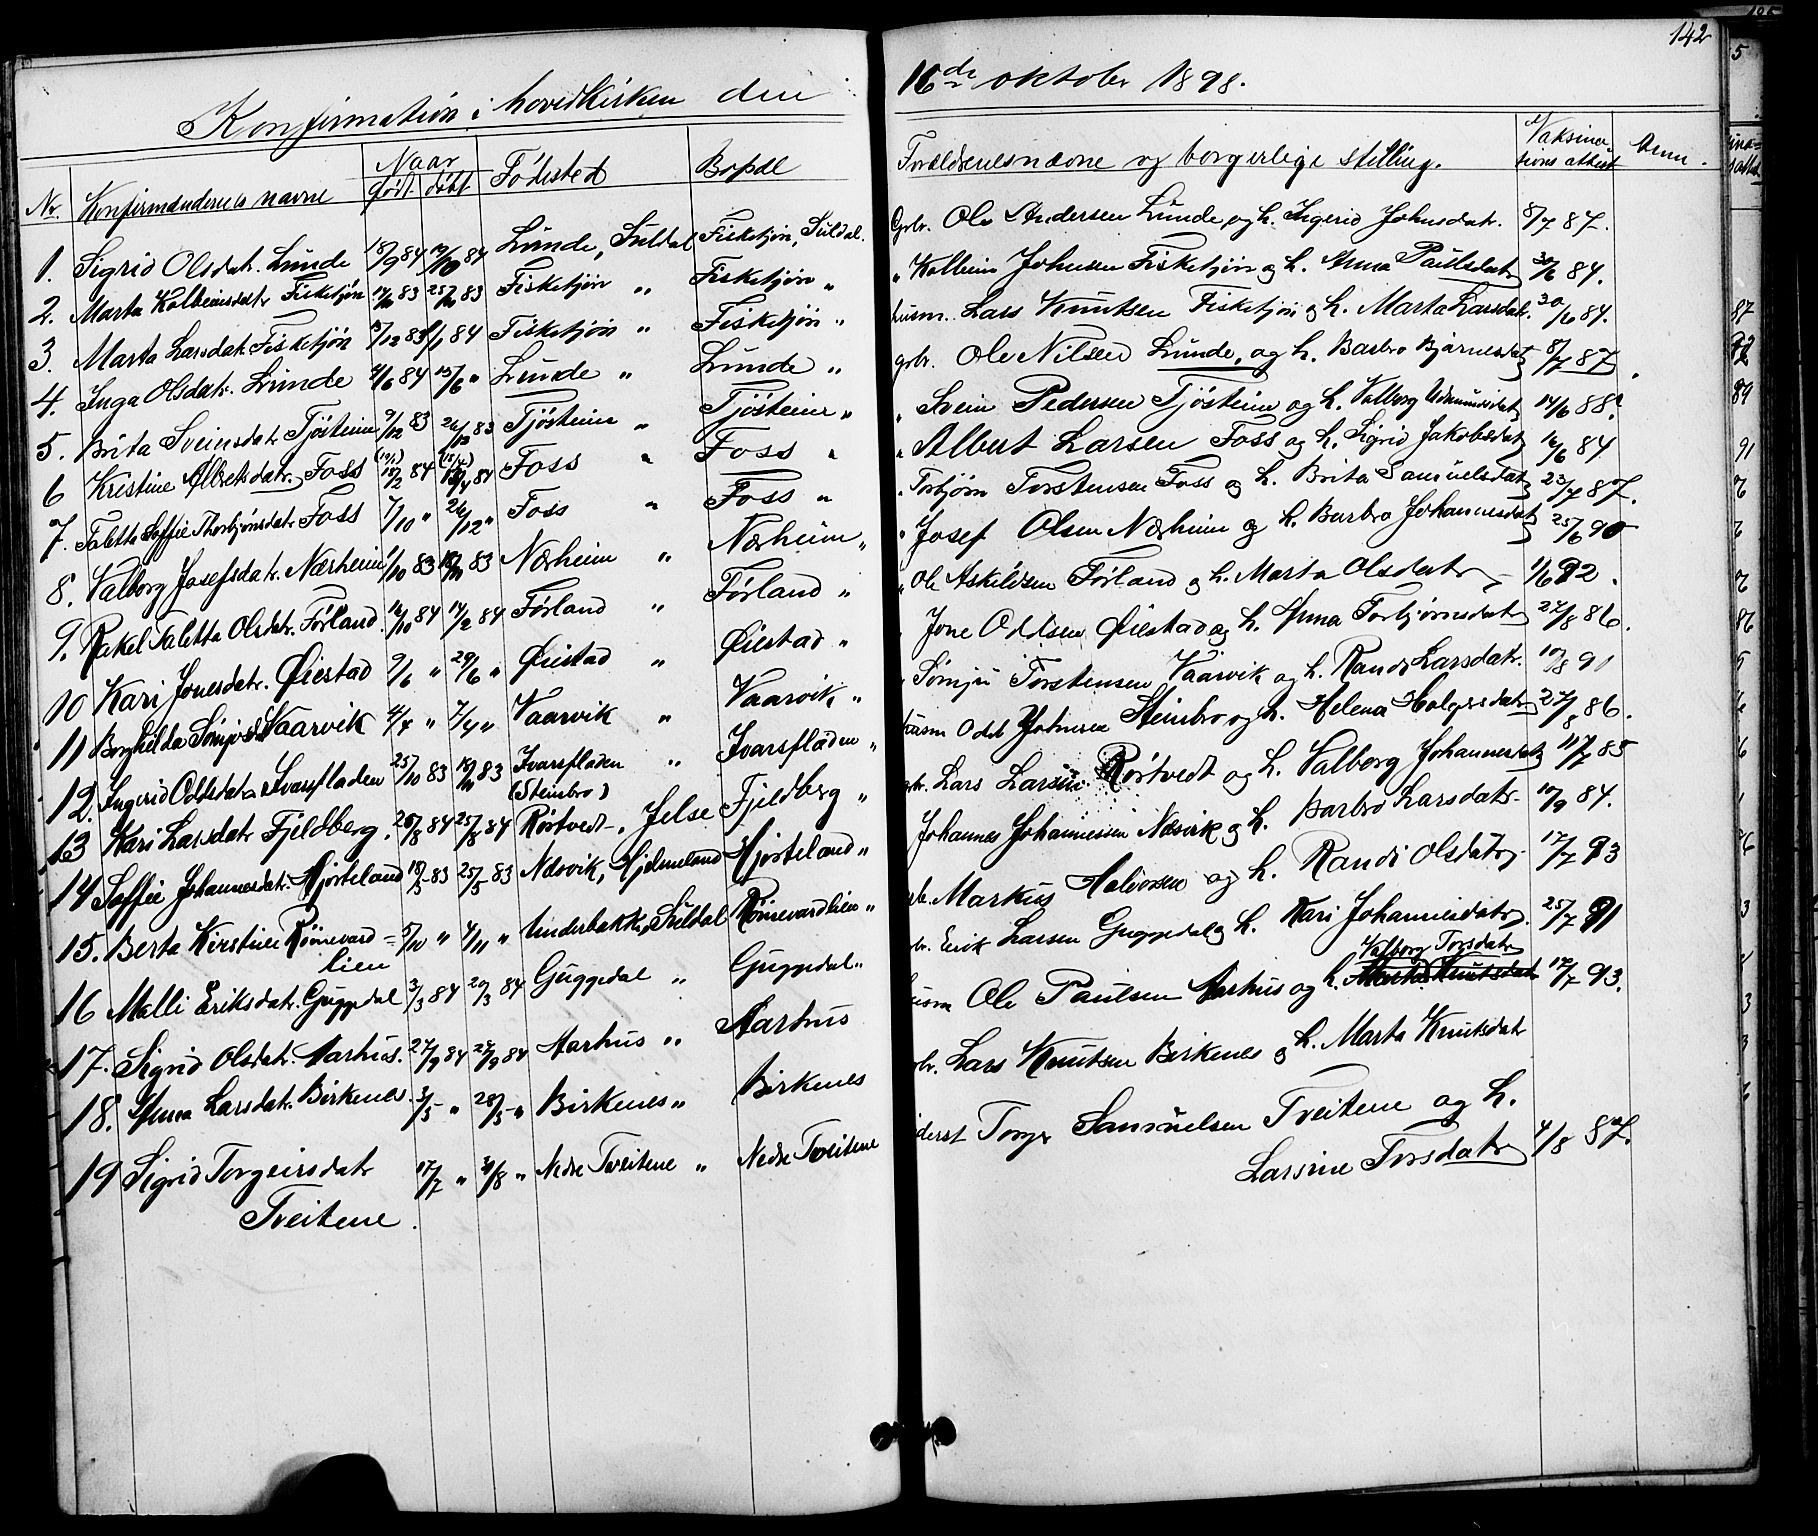 142
Konfirmation i hovedkirken den 16de oktober 1898.
Nr. Konfirmandernes navne Naar født døbt Fødested Bopæl Forældrenes navne og borgerlige stilling. Vaksinationsattest Anm.
1. Sigrid Olsdatr. Lunde 18/9 84 19/10 84 Lunde, Suldal Fisketjøn, Suldal. Gbr. Ole Andersen Lunde, og h. Ingerid Johnsdatr. 8/7 87.
2. Marta Kolbeinsdatr Fisketjøn 83 83 Fisketjøn „ Fisketjøn „ „ Kolbein Johnsen Fisketjøn og h. Anna Paulsdatr 30/6 84.
3. Marta Larsdatr Fisketjøn /12 83 /1 84 Fisketjøn „ Fisketjøn „ husm. Lars Knutsen Fisketjøn og h. Marta Larsdatr. 30/6 84.
4. Inga Olsdatr. Lunde /6 84 15/6 „ Lunde „ Lunde „ gbr. Ole Nilsen Lunde, og h. Barbro Bjarnesdatr 8/7 87.
5. Brita Sveinsdatr Tjøsteim 9/12 83 26/12 83 Tjøsteim „ Tjøsteim „ „ Svein Pedersen Tjøsteim og h. Valborg 14/6 88.
6 Kristine Albretsdatr. Foss 18/2 84 84 Foss „ Foss „ „ Albert Larsen Foss og h. Sigrid Jakobsdatr 16/6 84
7. Taletta Soffie Thorbjørnsdatr Foss 7/10 „ 26/12 „ Foss „ Foss „ „ Torbjørn Torstensen Foss og h. Brita Samuelsdatr 23/7 87.
8. Valborg Josefsdatr. Nærheim /10 83 83 Nærheim „ Nærheim „ „ Josef Olsen Nærheim og h. Barbro Johannesdatr 25/6 90
9. Rakel Taletta Olsdatr. Førland 16/10 84 14/2 84 Førland „ Førland „ „ Ole Askildsen Førland og h. Marta Olsdatr 1/6 92.
10 Kari Jonesdatr. Øiestad 9/6 „ 29/6 „ Øiestad „ Øiestad „ „ Jone Oddsen Øiestad og h. Anna Torbjørnsdatr 27/8 86.
11 Borghilda Vaarvik 4/4 „ 7/4 „ Vaarvik „ Vaarvik „ „ Torstensen Vaarvik og h. Randi Larsdatr. 10/8 91
12. Ingerid Oddsdatr Ivarsfladen 25/10 83 18/11 83 Ivarsfladen „ (Steinbro) Ivarsfladen „ husm Odd Johnsen Steinbro og h. Helena Holgersdatr 27/8 86.
13 Kari Larsdatr Fjeldberg. 20/8 84 25/8 84 Rørtvedt, Jelse Fjeldberg „ gbr. Lars Larsen Rørtvedt og h. Valborg Johannesdatr 11/7 85
14 Soffie Johannesdatr. Hjorteland 18/3 83 25/5 83 Næsvik, Hjelmeland Hjorteland „ Johannes Johannessen Næsvik og h. Barbro Larsdatr. 10/9 84.
15. Berta Kirstine Rønevardlien 5/10 „ 4/11 „ Underbakke, Suldal Rønevardlien „ gbr. Markus Halvorsen og h. Randi Olsdatr. 17/7 93
16 Malli Eriksdatr. Guggedal 3/3 84 20/3 84 Guggedal „ Guggedal „ gbr. Erik Larsen Guggedal og h. Kari Johannesdatr. 25/7 91
17. Sigrid Olsdatr. Aarhus. 27/9 84 28/9 84 Aarhus „ Aarhus husm Ole Paulsen Aarhus og h. Valborg Torsdatr Marta Knutsdatr 17/7 93.
18. Anna Larsdatr. Birkenes. 3/5 „ 28/5 „ Birkenes „ Birkenes gbr. Lars Knutsen Birkenes og h. Marta Knutsdatr
19 Sigrid Torgeirsdatr Tveitene. 17/7 „ 31/8 „ Nedre Tveitene „ Nedre Tveitene inderst Torger Samuelsen Tveitene og h.
Larsine Torsdatr 4/8 87.